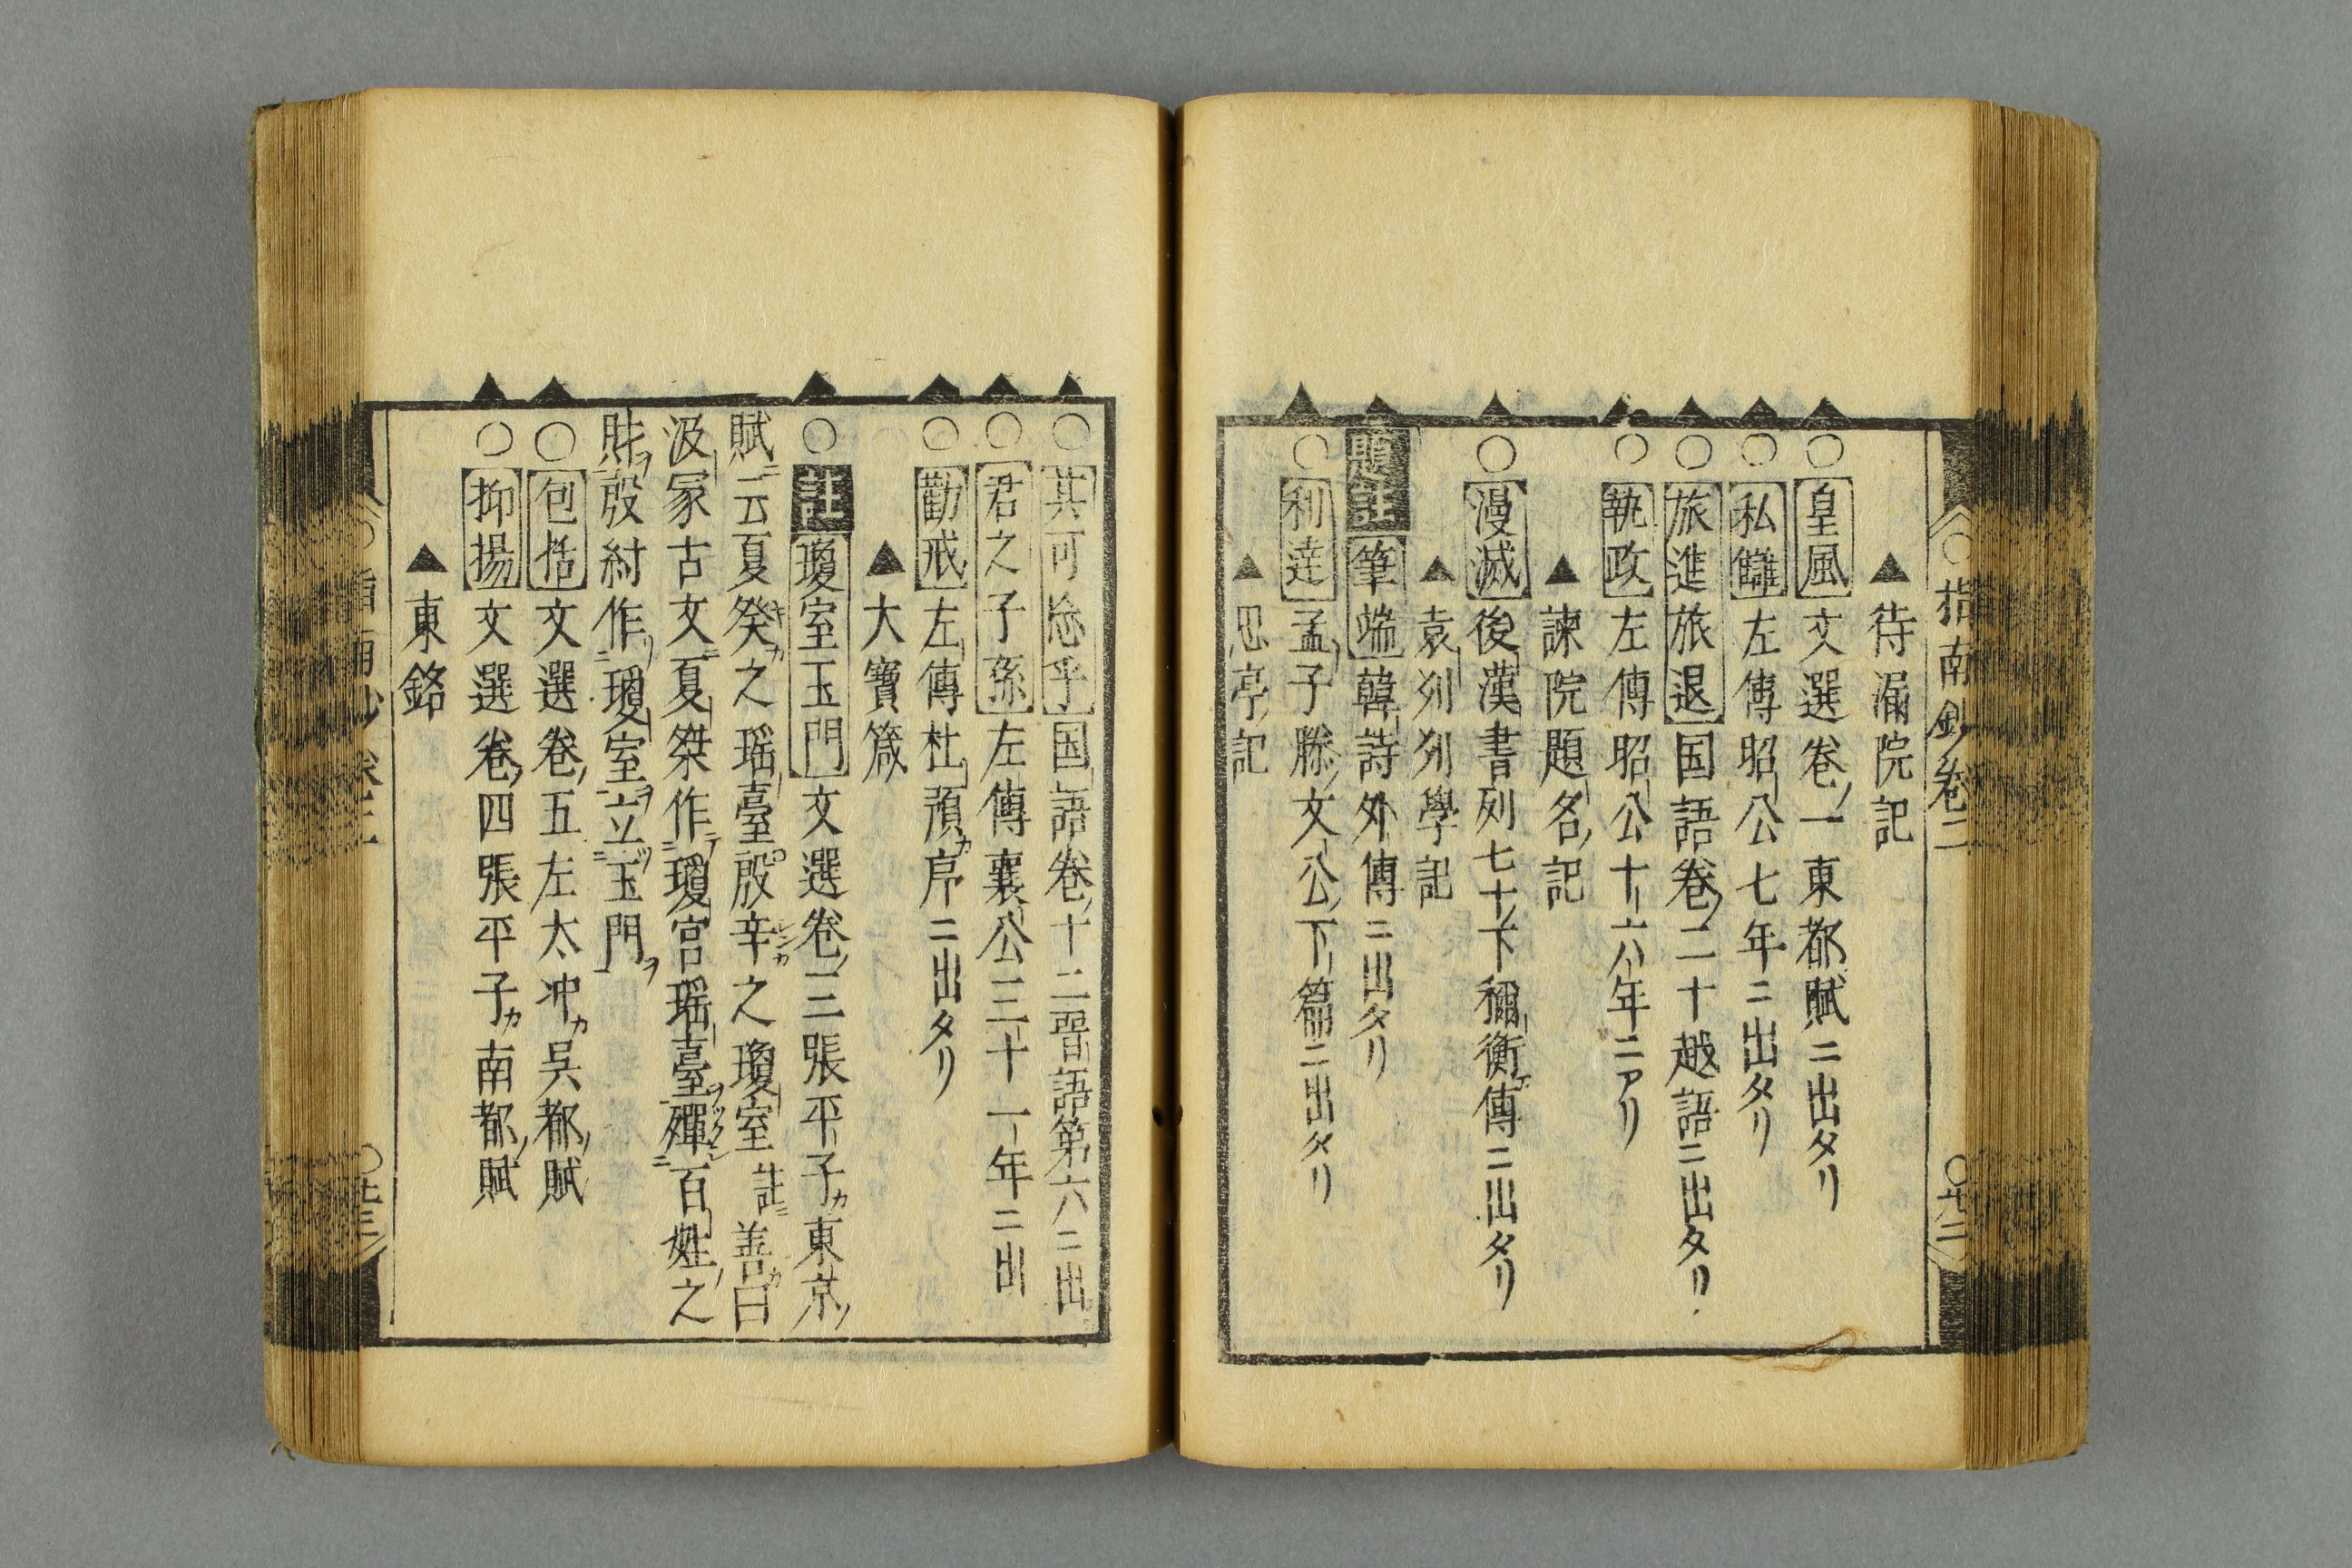 指南鈔卷二
▲待漏院記
○皇風文選卷ノ一東都賦ニ出タリ
○私讎左傳昭公七年ニ出タリ
○旅進旅退国語卷ノ二十越語ニ出タリ
○執政左傳昭公十六年ニアリ
▲諫院題名ノ記
○漫滅後漢書列七十ノ下禰衡傳ニ出タリ
▲袁州州學記
題註筆端韓詩外傳ニ出タリ
○利達孟子滕ノ文公ノ下篇ニ出タリ
▲思亭ノ記
○其可怠乎国語卷ノ十二晋語第六ニ出
○君之子孫左傳襄公三十一年ニ出
○勸戒左傳杜預カ序ニ出タリ
▲大寶箴
○註瓊室玉門文選卷ノ三張平子カ東京ノ
賦ニ云夏癸カ之瑶臺殷辛カ之瓊室註ニ善カ曰
汲冢古文ニ夏桀作瓊宮瑶臺殫百姓ノ之
財ヲ殷紂作瓊室ヲ立玉門ヲ
○包括文選卷ノ五左太冲カ呉都ノ賦
○抑揚文選卷ノ四張平子カ南都ノ賦
▲東銘